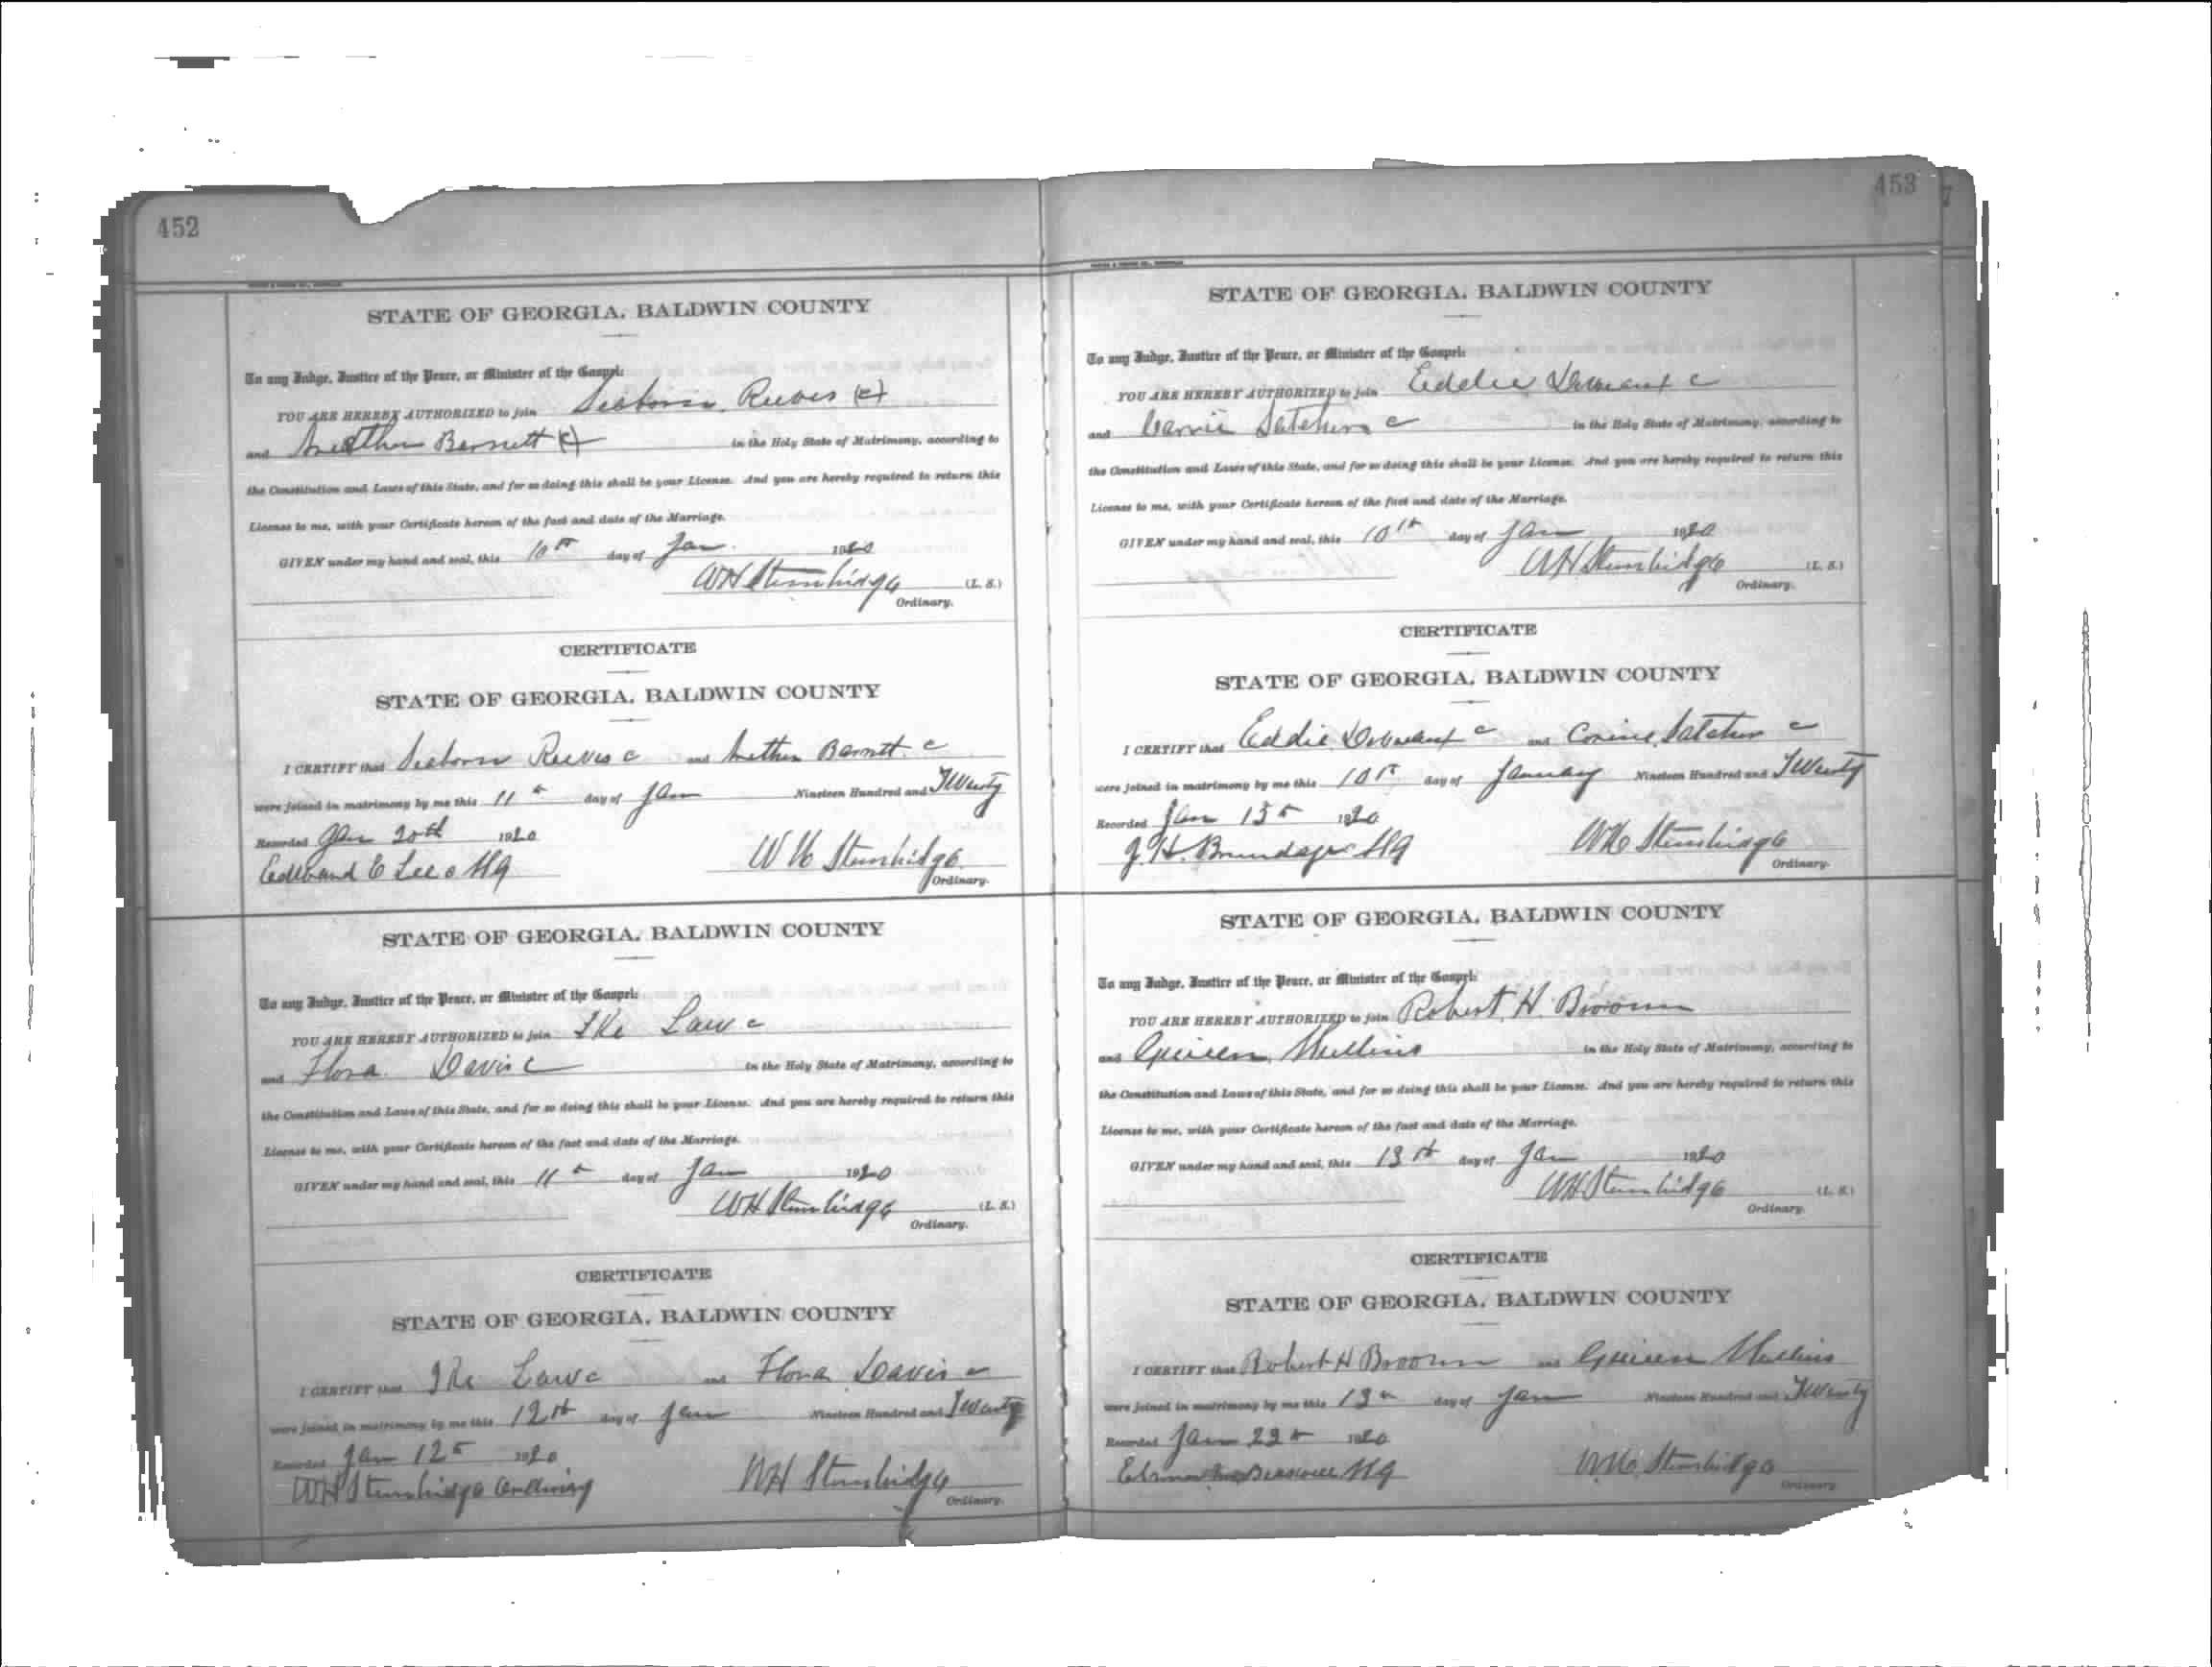 452
STATE OF GEORGIA, BALDWIN COUNTY
To any Judge, Justice of the Peace, or Minister of the Gospel:
YOU ARE HEREBY AUTHORIZED to join Seaborn Reeves (c)
and Barnett (c) in the Holy State of Matrimony, according to
the Constitution and Laws of this State, and for so doing this shall be your License. And you are hereby required to return this
License to me, with your Certificate hereon of the fact and date of the Marriage.
GIVEN under my hand and seal, this 10th day of Jan. 1920
WH Stembridge (L. S.)
Ordinary.
CERTIFICATE
STATE OF GEORGIA, BALDWIN COUNTY
I CERTIFY that Seaborn Reeves c and Barnett c
were joined in matrimony by me this 11th day of Jan Nineteen Hundred and Twenty
Recorded Jan 20th 1920
E Lee c MG WH Stembridge
Ordinary.
STATE OF GEORGIA, BALDWIN COUNTY
To any Judge, Justice of the Peace, or Minister of the Gospel:
YOU ARE HEREBY AUTHORIZED to join Ike Law c
and Flora Davis c in the Holy State of Matrimony, according to
the Constitution and Laws of this State, and for so doing this shall be your License. And you are hereby required to return this
License to me, with your Certificate hereon of the fact and date of the Marriage.
GIVEN under my hand and seal, this 11th day of Jan 1920
WH Stembridge (L. S.)
Ordinary.
CERTIFICATE
STATE OF GEORGIA, BALDWIN COUNTY
I CERTIFY that Ike Law c and Flora Davis c
were joined in matrimony by me this 12th day of Jan Nineteen Hundred and Twenty
Recorded Jan 12th 1920
WH Stembridge Ordinary WH Stembridge
Ordinary.
453
STATE OF GEORGIA, BALDWIN COUNTY
To any Judge, Justice of the Peace, or Minister of the Gospel:
YOU ARE HEREBY AUTHORIZED to join Eddie c
and Carrie c in the Holy State of Matrimony, according to
the Constitution and Laws of this State, and for so doing this shall be your License. And you are hereby required to return this
License to me, with your Certificate hereon of the fact and date of the Marriage.
GIVEN under my hand and seal, this 10th day of Jan 1920
WH Stembridge (L. S.)
Ordinary.
CERTIFICATE
STATE OF GEORGIA, BALDWIN COUNTY
I CERTIFY that Eddie c and c
were joined in matrimony by me this 10th day of January Nineteen Hundred and Twenty
Recorded Jan 15th 1920
J. H. MG WH Stembridge
Ordinary.
STATE OF GEORGIA, BALDWIN COUNTY
To any Judge, Justice of the Peace, or Minister of the Gospel:
YOU ARE HEREBY AUTHORIZED to join Robert H. Broom
and Queen Mullins in the Holy State of Matrimony, according to
the Constitution and Laws of this State, and for so doing this shall be your License. And you are hereby required to return this
License to me, with your Certificate hereon of the fact and date of the Marriage.
GIVEN under my hand and seal, this 13th day of Jan 1920
WH Stembridge (L. S.)
Ordinary.
CERTIFICATE
STATE OF GEORGIA, BALDWIN COUNTY
I CERTIFY that Robert H Broom and Queen Mullins
were joined in matrimony by me this 13th day of Jan Nineteen Hundred and Twenty
Recorded Jan 22th 1920
MG WH Stembridge
Ordinary